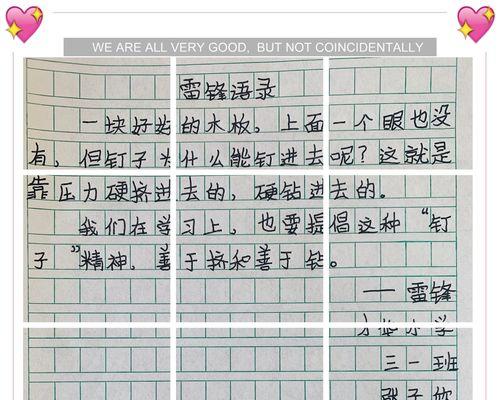 WE ARE ALL VERY GOOD, BUT NOT COINCIDENTALLY
雷锋语录
一块好好的木板,上面一个眼也没
有,但钉子为什么能钉进去呢?这就是
靠压力硬挤进去的,硬钻进去的。
我们在学习上,也要提倡这种“钉
子”精神,善于挤和善于钻。
——雷锋
小学
三一班
张子